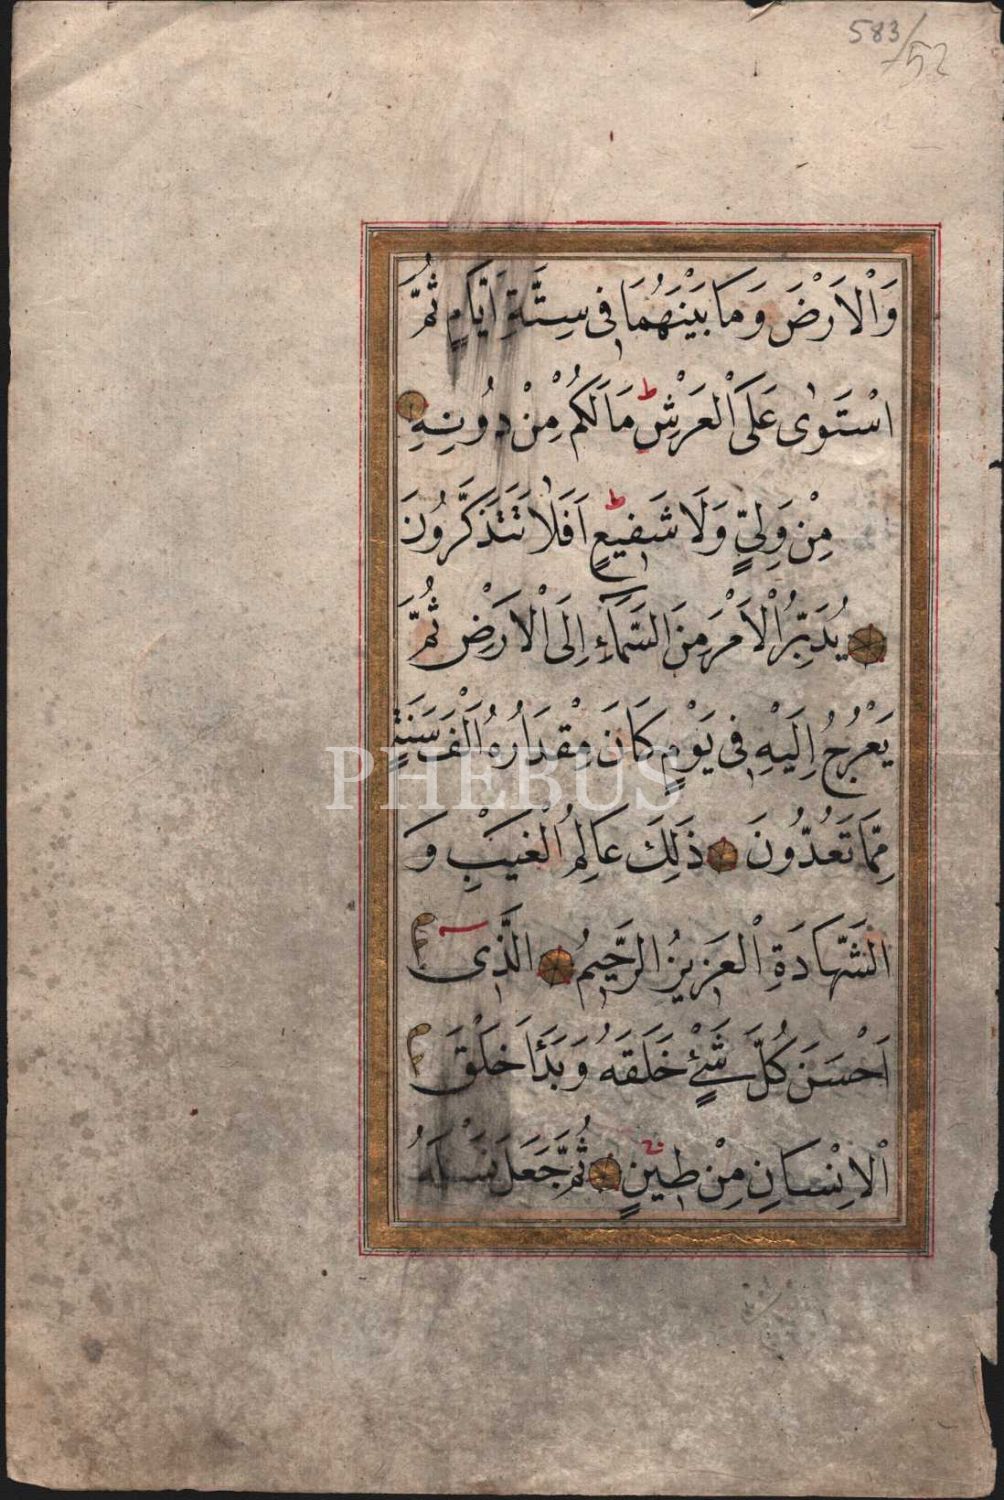 583/52
وَالْاَرْضَ وَمَا بَيْنَهُمَا فٖى سِتَّةِ اَيَّامٍ ثُمَّ
اسْتَوٰى عَلَى الْعَرْشِ ط مَا لَكُمْ مِنْ دُونِهٖ
مِنْ وَلِىٍّ وَلَا شَفٖيعٍ ط اَفَلَا تَتَذَكَّرُونَ
يُدَبِّرُ الْاَمْرَ مِنَ السَّمَٓاءِ اِلَى الْاَرْضِ ثُمَّ
يَعْرُجُ اِلَيْهِ فٖى يَوْمٍ كَانَ مِقْدَارُهُ اَلْفَ سَنَةٍ
مِمَّا تَعُدُّونَ ذٰلِكَ عَالِمُ الْغَيْبِ وَ
الشَّهَادَةِ الْعَزٖيزُ الرَّحٖيمُ الَّذٖٓى
اَحْسَنَ كُلَّ شَىْءٍ خَلَقَهُ وَبَدَاَ خَلْقَ
الْاِنْسَانِ مِنْ طٖينٍ ثُمَّ جَعَلَ نَسْلَهُ
PHEBUS